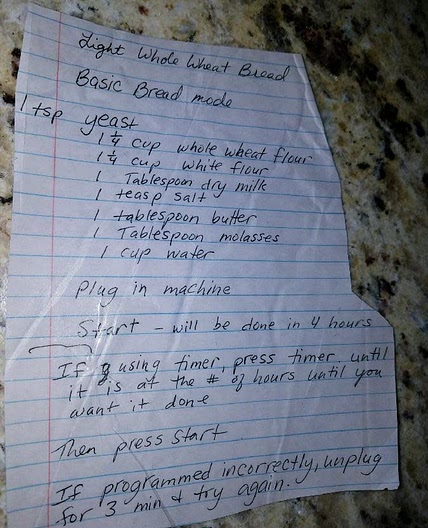 Light Whole Wheat Bread
Basic Bread mode
1 tsp yeast
1 1/4 cup whole wheat flour
1 1/4 cup white flour
1 Tablespoon dry milk
1 teasp salt
1 tablespoon butter
1 Tablespoon molasses
1 cup water
Plug in machine
Start - will be done in 4 hours
If using timer, press timer until
it is at the # of hours until you
want it done
Then press Start
If programmed incorrectly, unplug
for 3 min & try again.